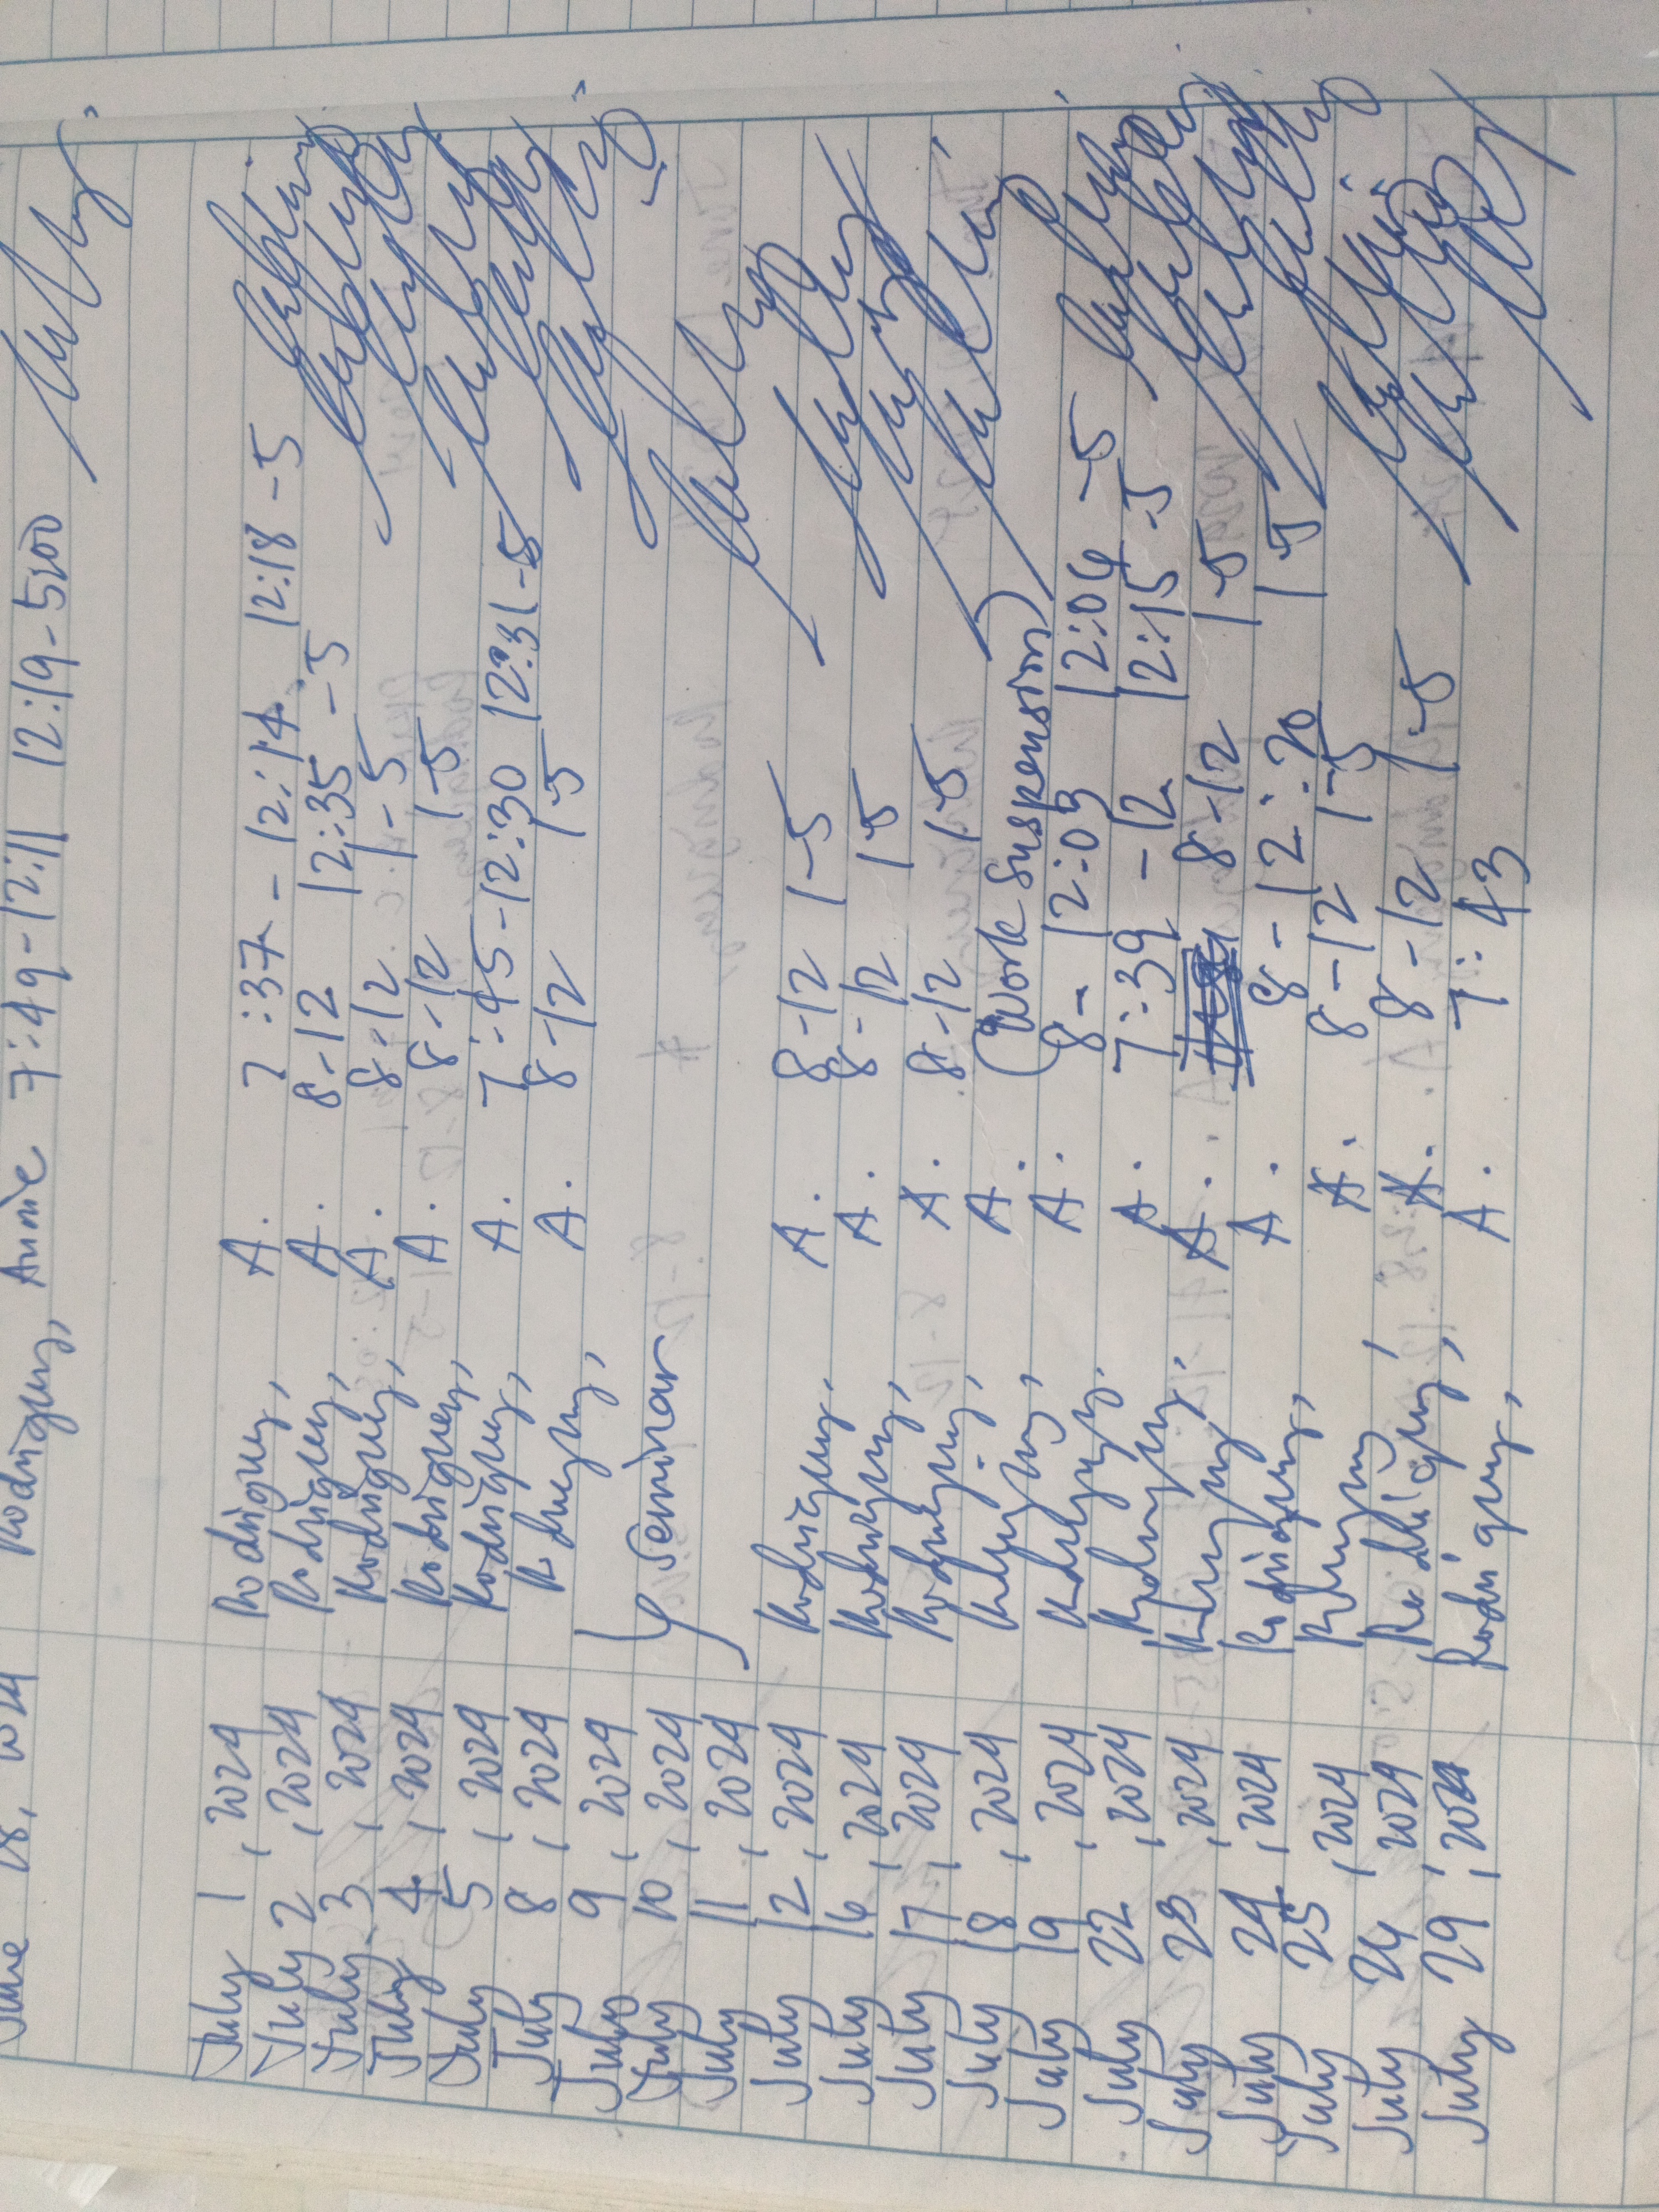 June 28, 2024 Rodriguez, Annie 7:49-12:11 12:19-5:00
July 1, 2024 Rodriguez, A. 7:37-12:14 12:18-5
July 2, 2024 Rodriguez, A. 8-12 12:35-5
July 3, 2024 Rodriguez, A. 8-12 1-5
July 4, 2024 Rodriguez, A. 8-12 1-5
July 5, 2024 Rodriguez, A. 7:45-12:30 12:31-5
July 8, 2024 Rodriguez, A. 8-12 1-5
July 9, 2024
July 10, 2024 Seminar
July 11, 2024
July 12, 2024 Rodriguez, A. 8-12 1-5
July 16, 2024 Rodriguez, A. 8-12 1-5
July 17, 2024 Rodriguez, A. 8-12 1-5
July 18, 2024 Rodriguez, A. (Work Suspension)
July 19, 2024 Rodriguez, A. 8-12:03 12:04-5
July 22, 2024 Rodriguez, A. 7:39-12 12:15-5
July 23, 2024 Rodriguez, A. 8-12 1-5
July 24, 2024 Rodriguez, A. 8-12:20 1-5
July 25, 2024 Rodriguez, A. 8-12 1-5
July 26, 2024 Rodriguez, A. 8-12 1-5
July 29, 2024 Rodriguez, A. 7:43